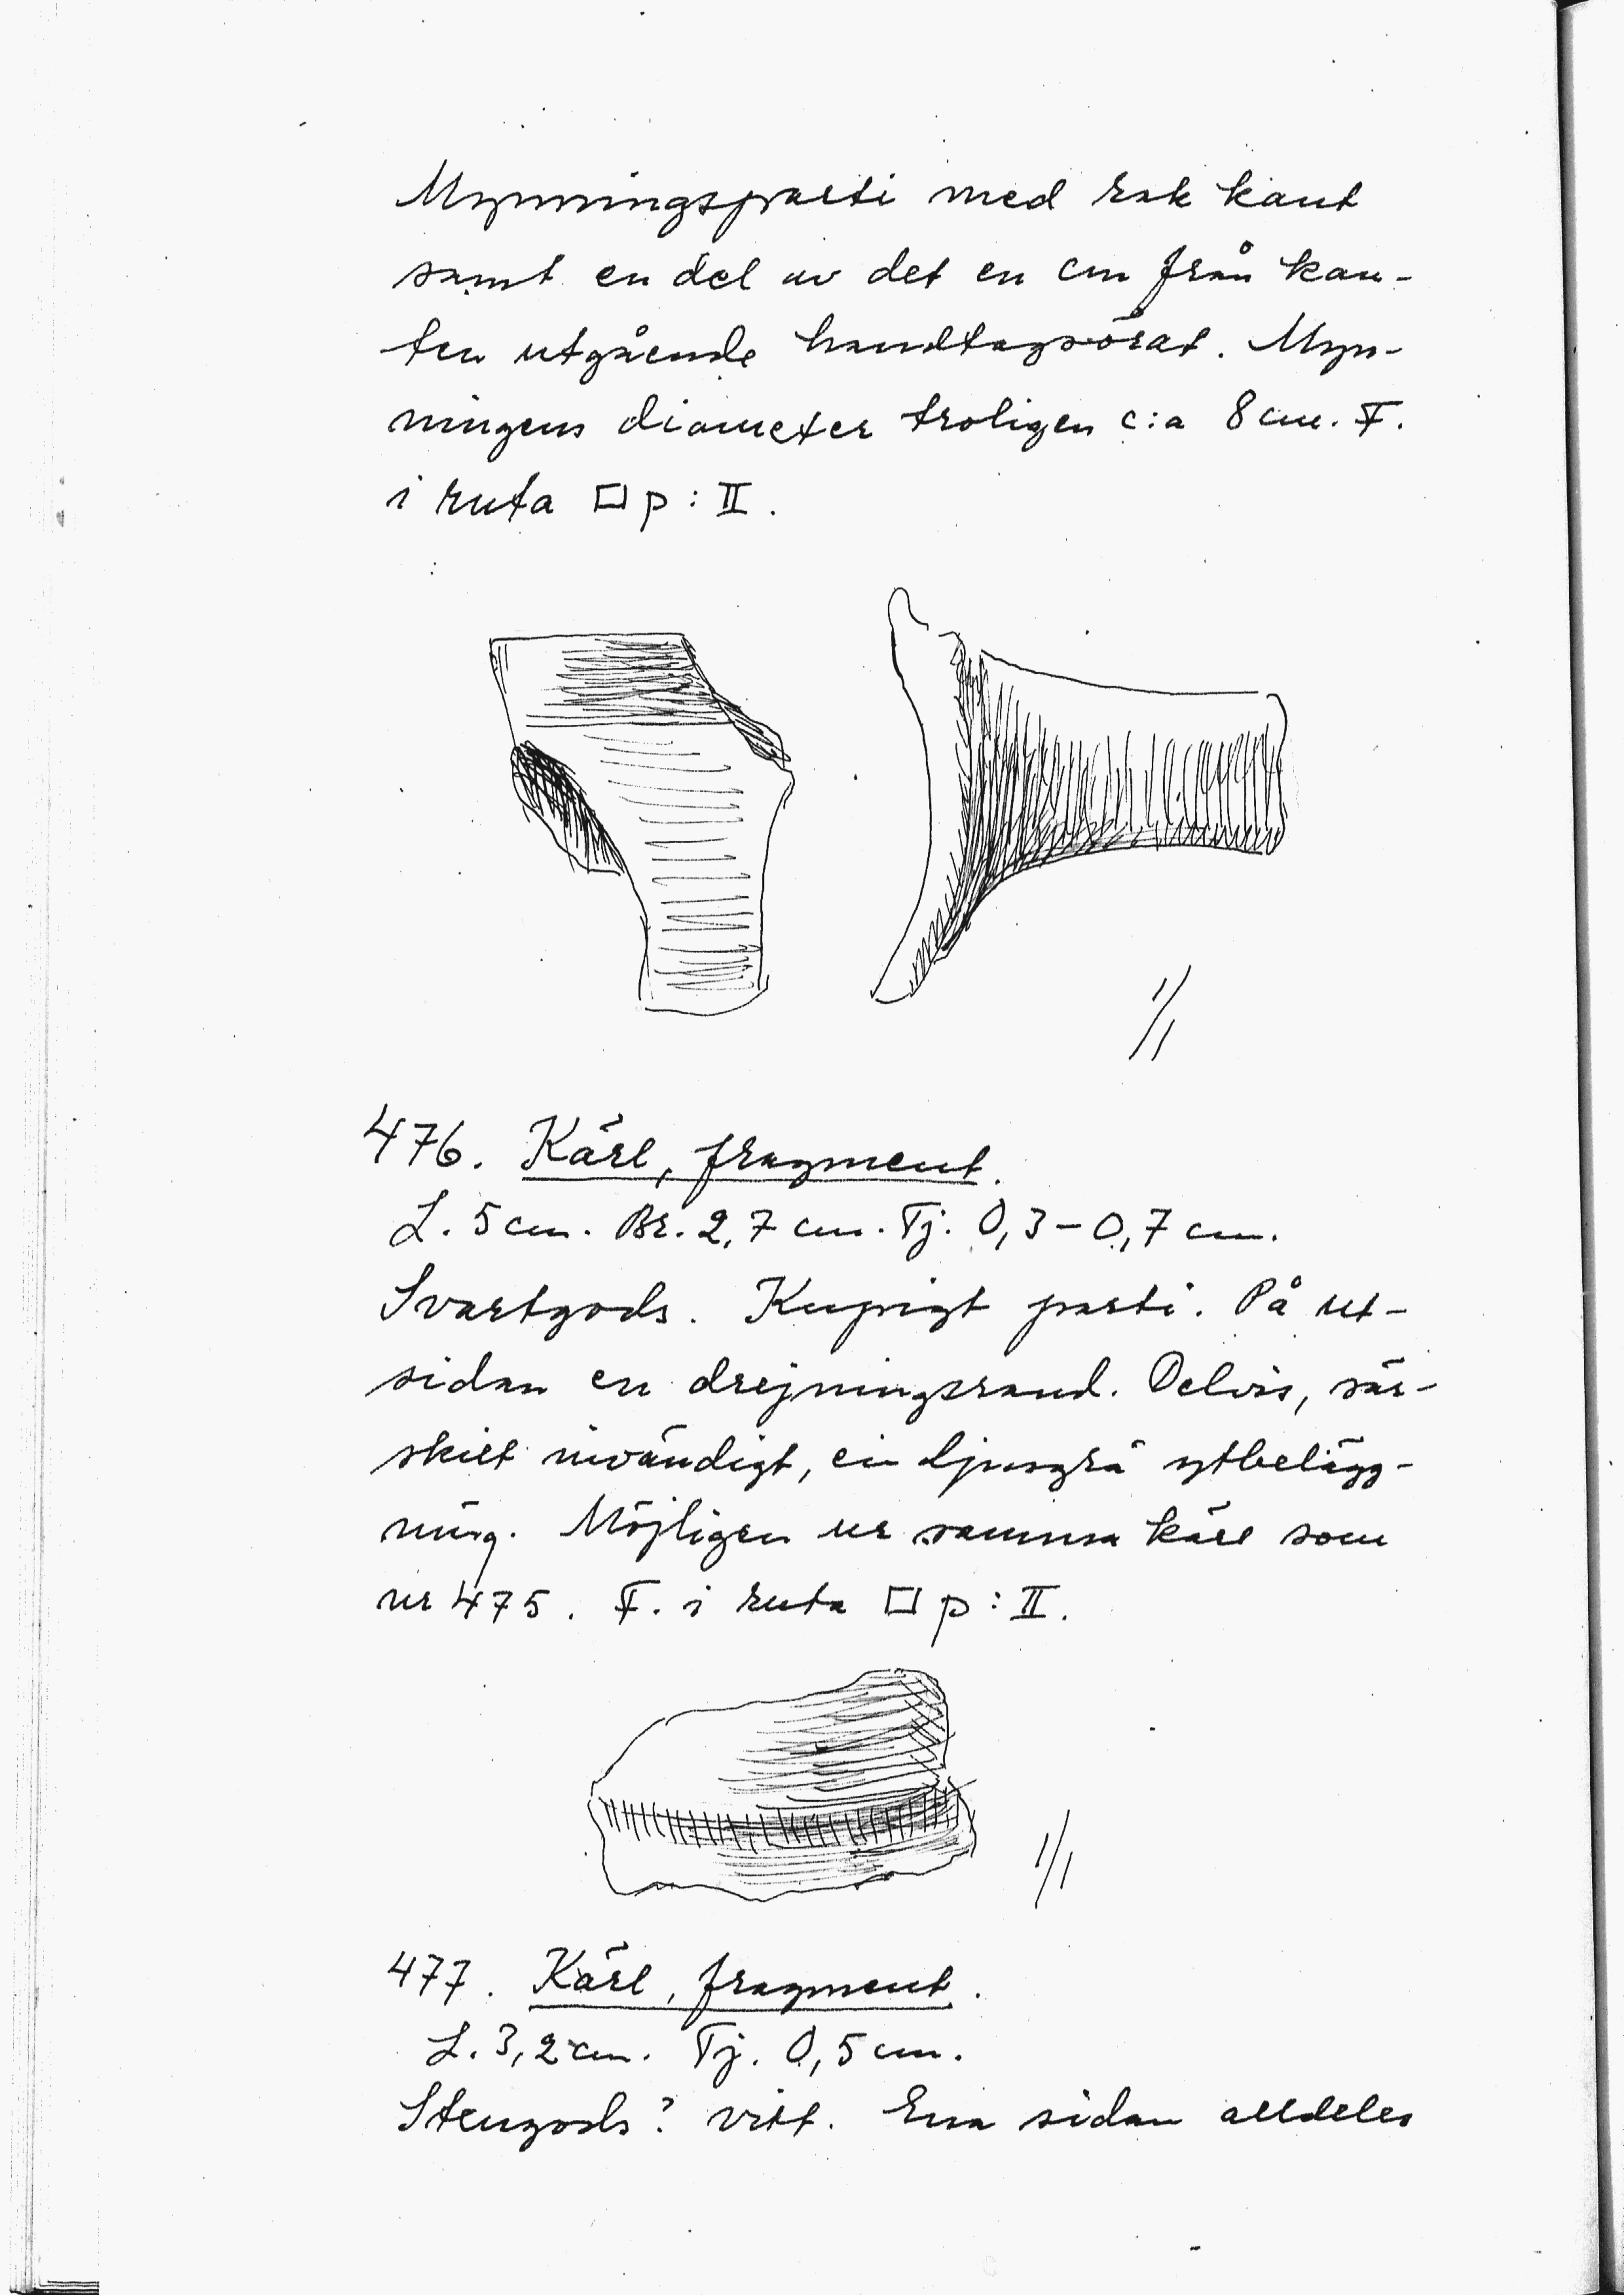 Mynningsparti med rak kant
samt en del av det en cm från kan-
ten utgående handtagsörat. Myn-
ningens diameter troligen c:a 8 cm. F.
i ruta □ p : II.
1/1
476. Kärl, fragment.
L. 5 cm. Br. 2,7 cm. Tj. 0,3 – 0,7 cm.
Svartgods. Kupigt parti. På ut-
sidan en drejningsrand. Delvis, sär-
skilt invändigt, en ljusgrå ytbelägg-
ning. Möjligen ur samma kärl som
nr 475. F. i ruta □ p : II.
1/1
477. Kärl, fragment.
L. 3,2 cm. Tj. 0,5 cm.
Stengods? vitt. Ena sidan alldeles